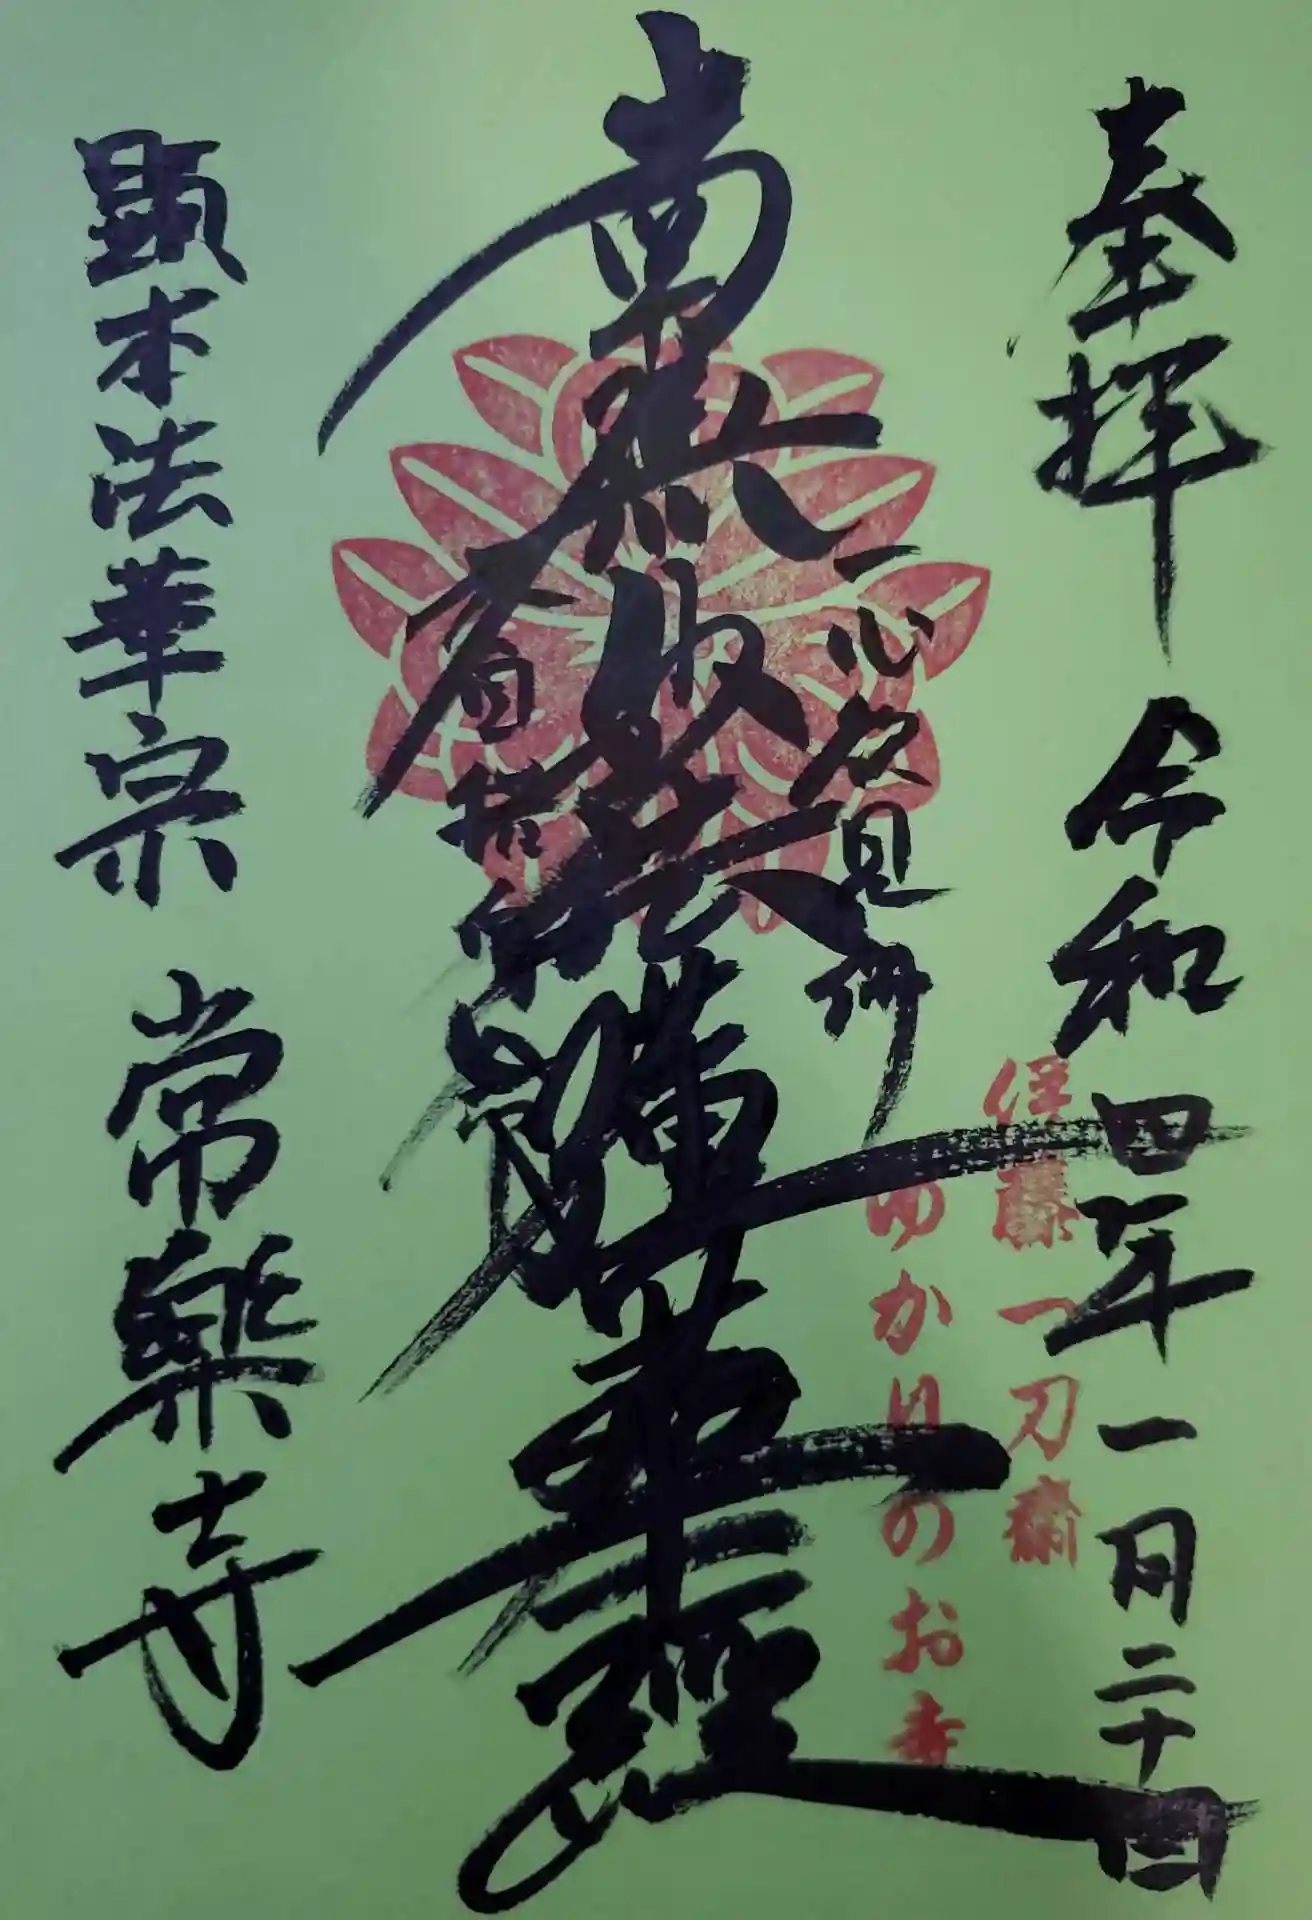 奉拝 令和四年一月二十日
伊藤一刀斎
ゆかりのお寺
一心欲見佛
南無妙法蓮華經
不自惜身命
顕本法華宗 常樂寺